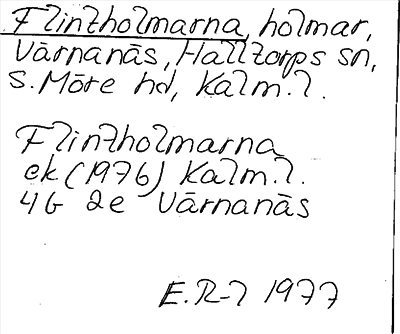 Flintholmarna, holmar,
Värnanäs, Halltorps sn,
S. Möre hd, Kalm. l.
Flintholmarna
ek (1976) Kalm. l.
4G 2e Värnanäs
E.R-7 1977